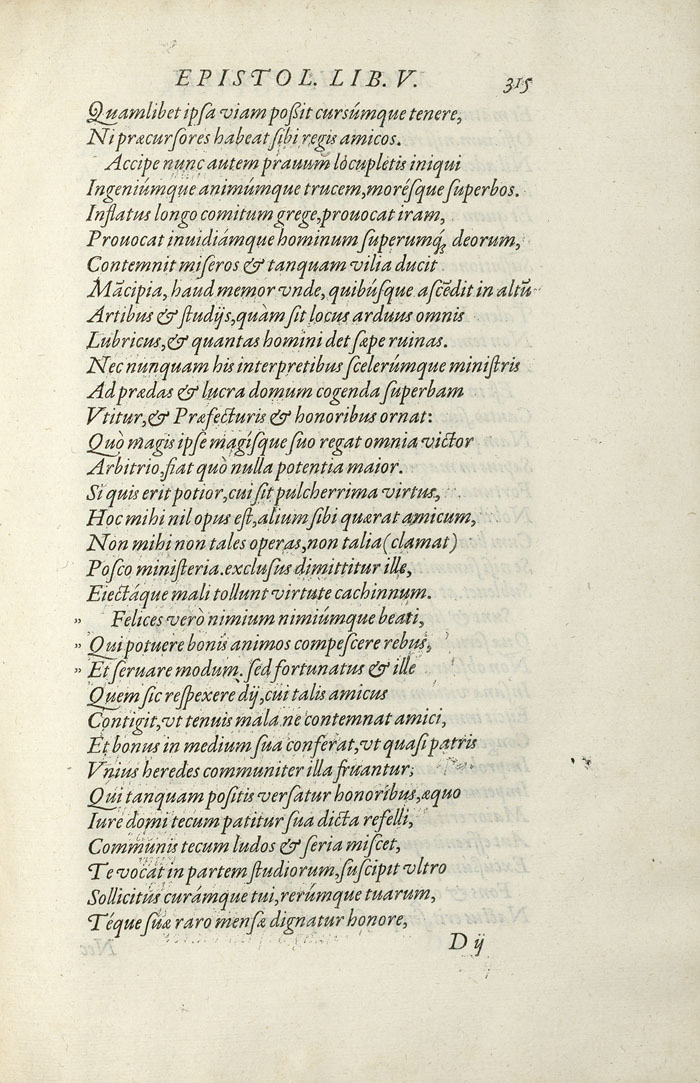 EPISTOL. LIB. V. 315
Quamlibet ipſa viam poßit cursúmque tenere,
Ni præcurſores habeat ſibi regis amicos.
Accipe nunc autem prauum locupletis iniqui
Ingeniúmque animúmque trucem, moréſque ſuperbos.
Inflatus longo comitum grege, prouocat iram,
Prouocat inuidiámque hominum ſuperumq́; deorum,
Contemnit miſeros & tanquam vilia ducit
Mācipia, haud memor vnde, quibúſque aſcēdit in altū
Artibus & ſtudijs, quàm ſit locus arduus omnis
Lubricus, & quantas homini det ſæpe ruinas.
Nec nunquam his interpretibus ſcelerúmque miniſtris
Ad prædas & lucra domum cogenda ſuperbam
Vtitur, & Præfecturis & honoribus ornat:
Quò magis ipſe magíſque ſuo regat omnia victor
Arbitrio, fiat quò nulla potentia maior.
Si quis erit potior, cui ſit pulcherrima virtus,
Hoc mihi nil opus eſt, alium ſibi quærat amicum,
Non mihi non tales operas, non talia (clamat)
Poſco miniſteria. excluſus dimittitur ille,
Eiectáque mali tollunt virtute cachinnum.
„ Felices verò nimium nimiúmque beati,
„ Qui potuere bonis animos compeſcere rebus,
„ Et ſeruare modum. ſed fortunatus & ille
Quem ſic reſpexere dij, cui talis amicus
Contigit, vt tenuis mala ne contemnat amici,
Et bonus in medium ſua conferat, vt quaſi patris
Vnius heredes communiter illa fruantur;
Qui tanquam poſitis verſatur honoribus, æquo
Iure domi tecum patitur ſua dicta refelli,
Communis tecum ludos & ſeria miſcet,
Te vocat in partem ſtudiorum, ſuſcipit vltro
Sollicitus curámque tui, rerúmque tuarum,
Téque ſuæ raro menſæ dignatur honore,
D ij